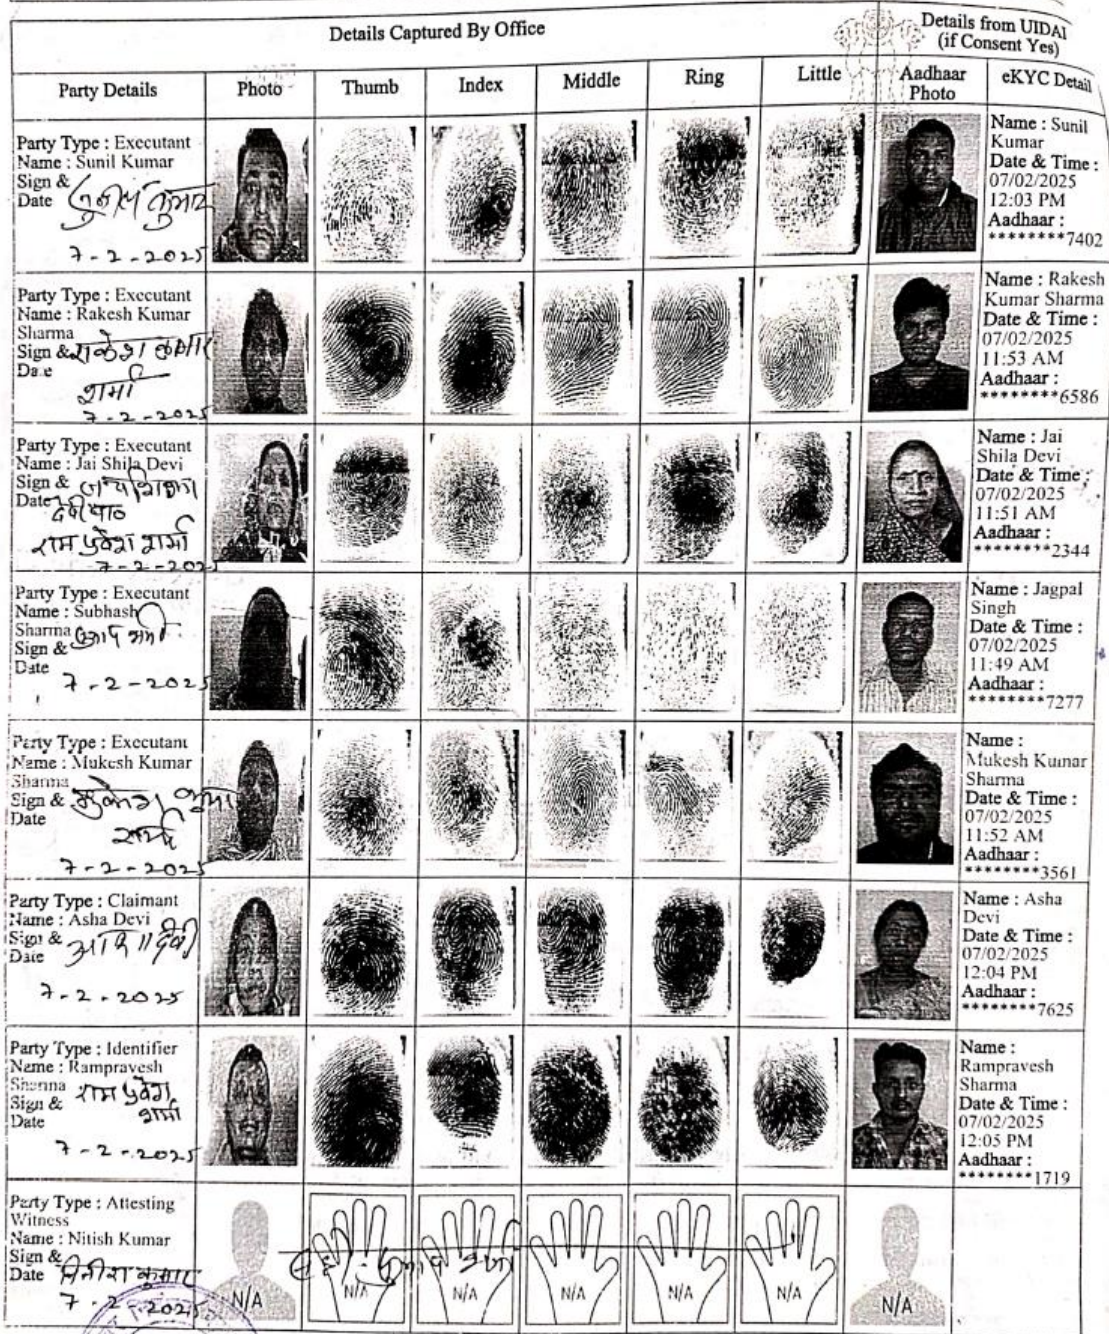 Details Captured By Office
Details from UIDAI
(if Consent Yes)
Party Details
Photo
Thumb
Index
Middle
Ring
Little
Aadhaar
Photo
eKYC Detail
Party Type : Executant
Name : Sunil Kumar
Sign &
Date सुनील कुमार
7-2-2025
Name : Sunil
Kumar
Date & Time :
07/02/2025
12:03 PM
Aadhaar :
********7402
Party Type : Executant
Name : Rakesh Kumar
Sharma
Sign & राकेश कुमार
Date
शर्मा
7-2-2025
Name : Rakesh
Kumar Sharma
Date & Time :
07/02/2025
11:53 AM
Aadhaar :
********6586
Party Type : Executant
Name : Jai Shila Devi
Sign &
Date देवी
राम प्रवेश शर्मा
7-2-2025
Name : Jai
Shila Devi
Date & Time :
07/02/2025
11:51 AM
Aadhaar :
********2344
Party Type : Executant
Name : Subhash
Sharma
Sign &
Date
7-2-2025
Name : Jagpal
Singh
Date & Time :
07/02/2025
11:49 AM
Aadhaar :
********7277
Party Type : Executant
Name : Mukesh Kumar
Sharma
Sign & मुकेश कुमार
Date शर्मा
7-2-2025
Name :
Mukesh Kumar
Sharma
Date & Time :
07/02/2025
11:52 AM
Aadhaar :
********3561
Party Type : Claimant
Name : Asha Devi
Sign & आशा देवी
Date
7-2-2025
Name : Asha
Devi
Date & Time :
07/02/2025
12:04 PM
Aadhaar :
********7625
Party Type : Identifier
Name : Rampravesh
Sharma
Sign & राम प्रवेश
Date शर्मा
7-2-2025
Name :
Rampravesh
Sharma
Date & Time :
07/02/2025
12:05 PM
Aadhaar :
********1719
Party Type : Attesting
Witness
Name : Nitish Kumar
Sign &
Date नितीश कुमार
7-2-2025
N/A
N/A
N/A
N/A
N/A
N/A
N/A